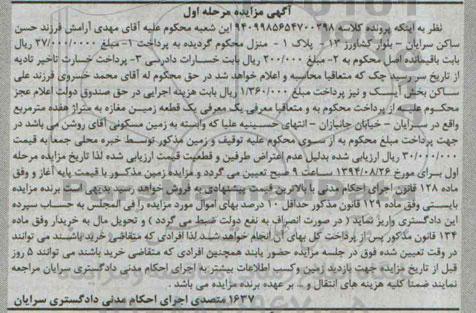 آگهی مزایده مرحله اول
نظر به اینکه پرونده کلاسه ۹۴۰۹۹۸۵۶۵۴۷۰۰۲۹۸ این شعبه محکوم علیه آقای مهدی آرامش فرزند حسن
ساکن سرایان – بلوار کشاورز ۱۳ – پلاک ۱ – منزل محکوم گردیده به پرداخت ۱- مبلغ ۲۷/۰۰۰/۰۰۰ ریال
بابت باقیمانده اصل محکوم به ۲- مبلغ ۲۰۰/۰۰۰ ریال بابت خسارات دادرسی ۳- پرداخت خسارت تاخیر تادیه
از تاریخ سر رسید چک که متعاقبا محاسبه و اعلام خواهد شد در حق محکوم له آقای محمد خسروی فرزند علی
ساکن بخش آیسک و نیز پرداخت مبلغ ۱/۳۶۰/۰۰۰ ریال بابت هزینه اجرایی در حق صندوق دولت اعلام عجز
محکوم علیه از پرداخت محکوم به و متعاقبا معرفی یک معرفی یک قطعه زمین مغازه به متراژ هفده مترمربع
واقع در سرایان – خیابان جانبازان – انتهای حسینیه علیا که وابسته به زمین مسکونی آقای روشن می باشد در
جهت پرداخت مبلغ محکوم به از سوی محکوم علیه توقیف و زمین مذکور توسط خبره محلی جمعا به قیمت
۳۰/۰۰۰/۰۰۰ ریال ارزیابی شده بدلیل عدم اعتراض طرفین و قطعیت قیمت ارزیابی شده لذا تاریخ مزایده مرحله
اول برای مورخ ۱۳۹۴/۰۸/۲۶ ساعت ۹ صبح تعیین می گردد و مزایده زمین مذکور با قیمت پایه آغاز و وفق
ماده ۱۲۸ قانون اجرای احکام مدنی با بالاترین قیمت پیشنهادی به فروش خواهد رسید بدیهی است برنده مزایده
بایستی وفق ماده ۱۲۹ قانون مذکور حداقل ۱۰ درصد بهای اموال مورد مزایده را فی المجلس به حساب سپرده
این دادگستری واریز نماید ( در صورت انصراف به نفع دولت ضبط می گردد ) و تحویل مال به خریدار وفق ماده
۱۳۴ قانون مذکور پس از پرداخت کل بهای آن انجام خواهد شد لذا افرادی که متقاضی خرید باشند می توانند
در وقت تعیین شده فوق در جلسه مزایده حضور یابند همچنین افرادی که متقاضی خرید باشند می توانند ۵ روز
قبل از تاریخ مزایده جهت بازدید زمین وکسب اطلاعات بیشتر به اجرای احکام مدنی دادگستری سرایان مراجعه
نمایند ضمنا کلیه هزینه های انتقال و ... بر عهده برنده مزایده می باشد .
۱۶۳۷ متصدی اجرای احکام مدنی دادگستری سرایان